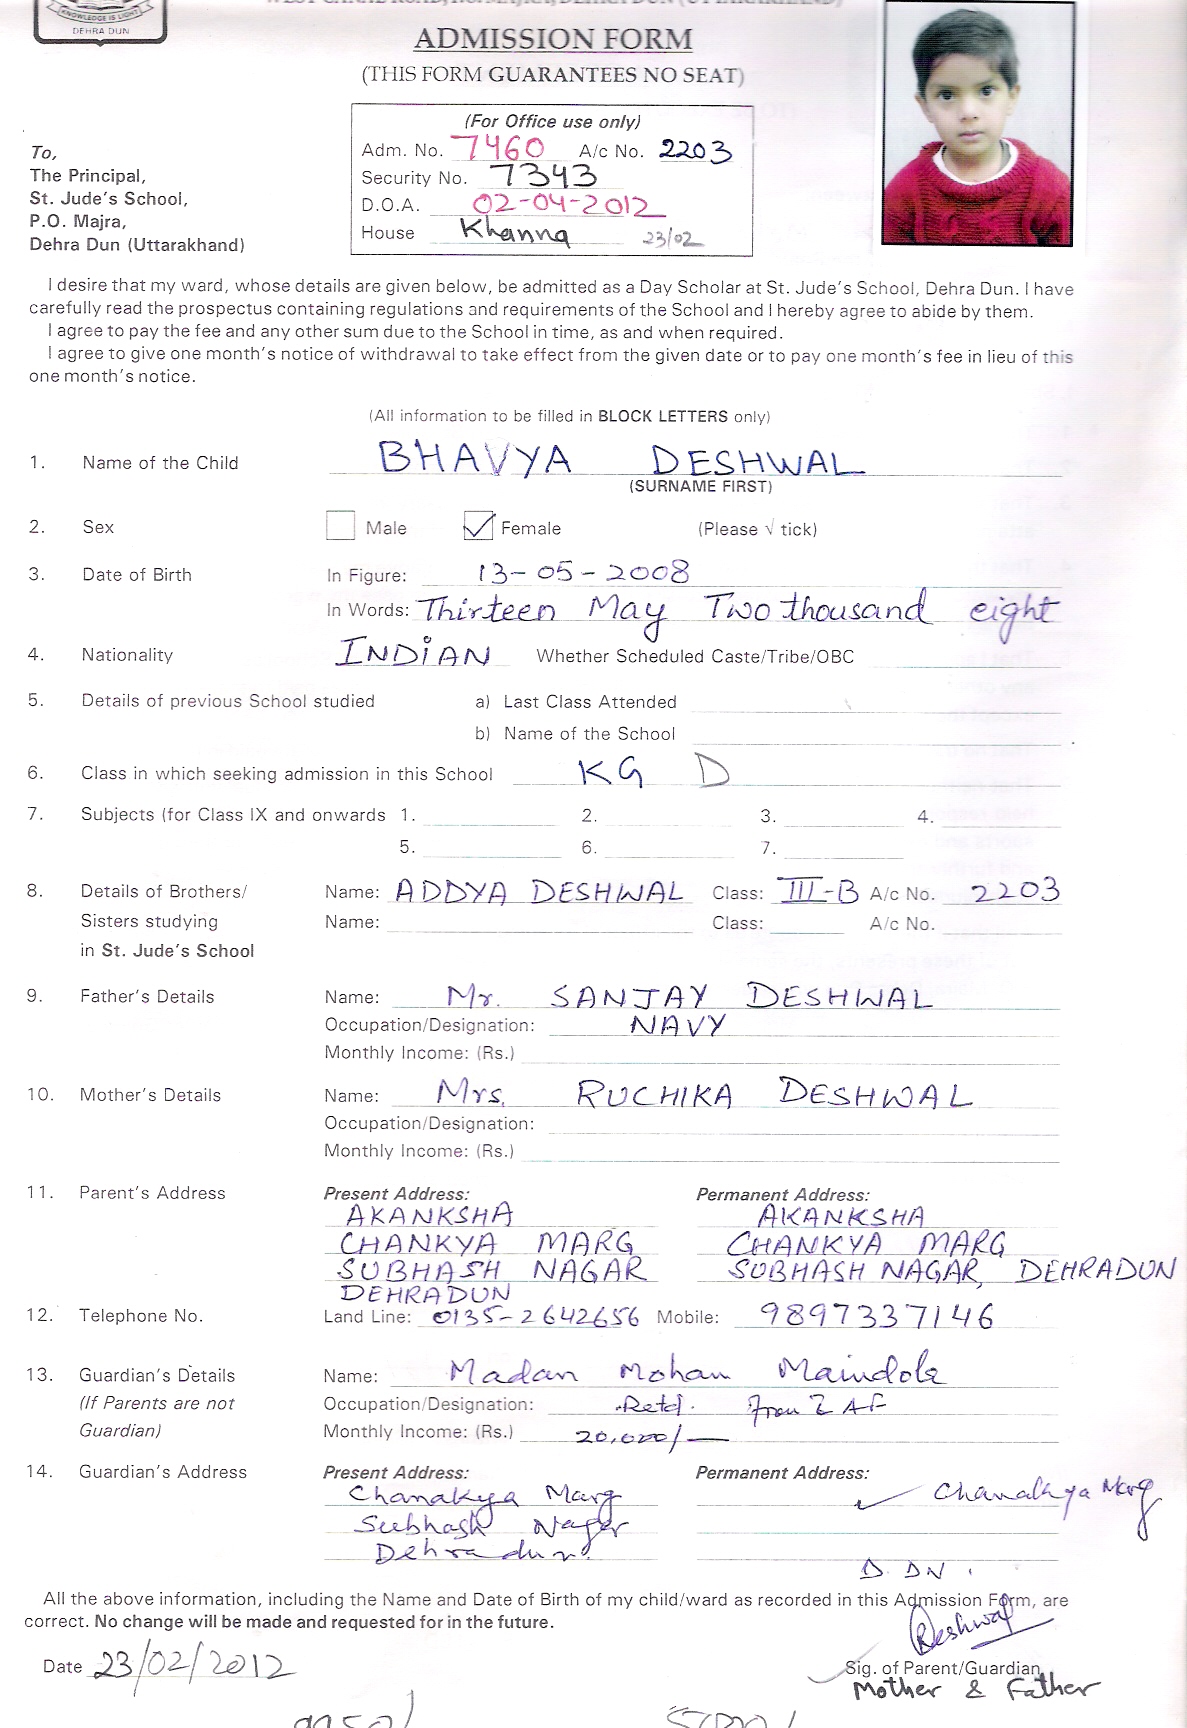 KNOWLEDGE IS LIGHT
DEHRA DUN
ADMISSION FORM
(THIS FORM GUARANTEES NO SEAT)
(For Office use only)
Adm. No. 7460 A/c No. 2203
Security No. 7343
D.O.A. 02-04-2012
House Khanna 23/02
To,
The Principal,
St. Jude's School,
P.O. Majra,
Dehra Dun (Uttarakhand)
I desire that my ward, whose details are given below, be admitted as a Day Scholar at St. Jude's School, Dehra Dun. I have
carefully read the prospectus containing regulations and requirements of the School and I hereby agree to abide by them.
I agree to pay the fee and any other sum due to the School in time, as and when required.
I agree to give one month's notice of withdrawal to take effect from the given date or to pay one month's fee in lieu of this
one month's notice.
(All information to be filled in BLOCK LETTERS only)
1. Name of the Child BHAVYA DESHWAL
(SURNAME FIRST)
2. Sex Male Female (Please √ tick)
3. Date of Birth In Figure: 13-05-2008
In Words: Thirteen May Two thousand eight
4. Nationality INDiAN Whether Scheduled Caste/Tribe/OBC
5. Details of previous School studied a) Last Class Attended
b) Name of the School
6. Class in which seeking admission in this School KG D
7. Subjects (for Class IX and onwards 1. 2. 3. 4.
5. 6. 7.
8. Details of Brothers/ Name: ADDYA DESHWAL Class: III-B A/c No. 2203
Sisters studying Name: Class: A/c No.
in St. Jude's School
9. Father's Details Name: Mr. SANJAY DESHWAL
Occupation/Designation: NAVY
Monthly Income: (Rs.)
10. Mother's Details Name: Mrs. RUCHIKA DESHWAL
Occupation/Designation:
Monthly Income: (Rs.)
11. Parent's Address Present Address: Permanent Address:
AKANKSHA AKANKSHA
CHANKYA MARG CHANKYA MARG
SUBHASH NAGAR SUBHASH NAGAR, DEHRADUN
DEHRADUN
12. Telephone No. Land Line: 0135-2642656 Mobile: 9897337146
13. Guardian's Details Name: Madan Mohan Maindola
(If Parents are not Occupation/Designation: Retd. from I AF
Guardian) Monthly Income: (Rs.) 20,000/-
14. Guardian's Address Present Address: Permanent Address:
Chanakya Marg Chanakya Marg
Subhash Nagar
Dehradun.
D. DN.
All the above information, including the Name and Date of Birth of my child/ward as recorded in this Admission Form, are
correct. No change will be made and requested for in the future.
RDeshwal
Date 23/02/2012 Sig. of Parent/Guardian
Mother & Father